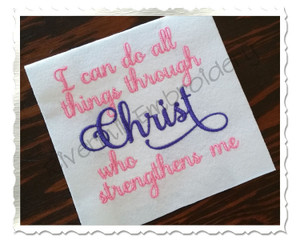 I can do all
things through
Christ
who
strengthens me